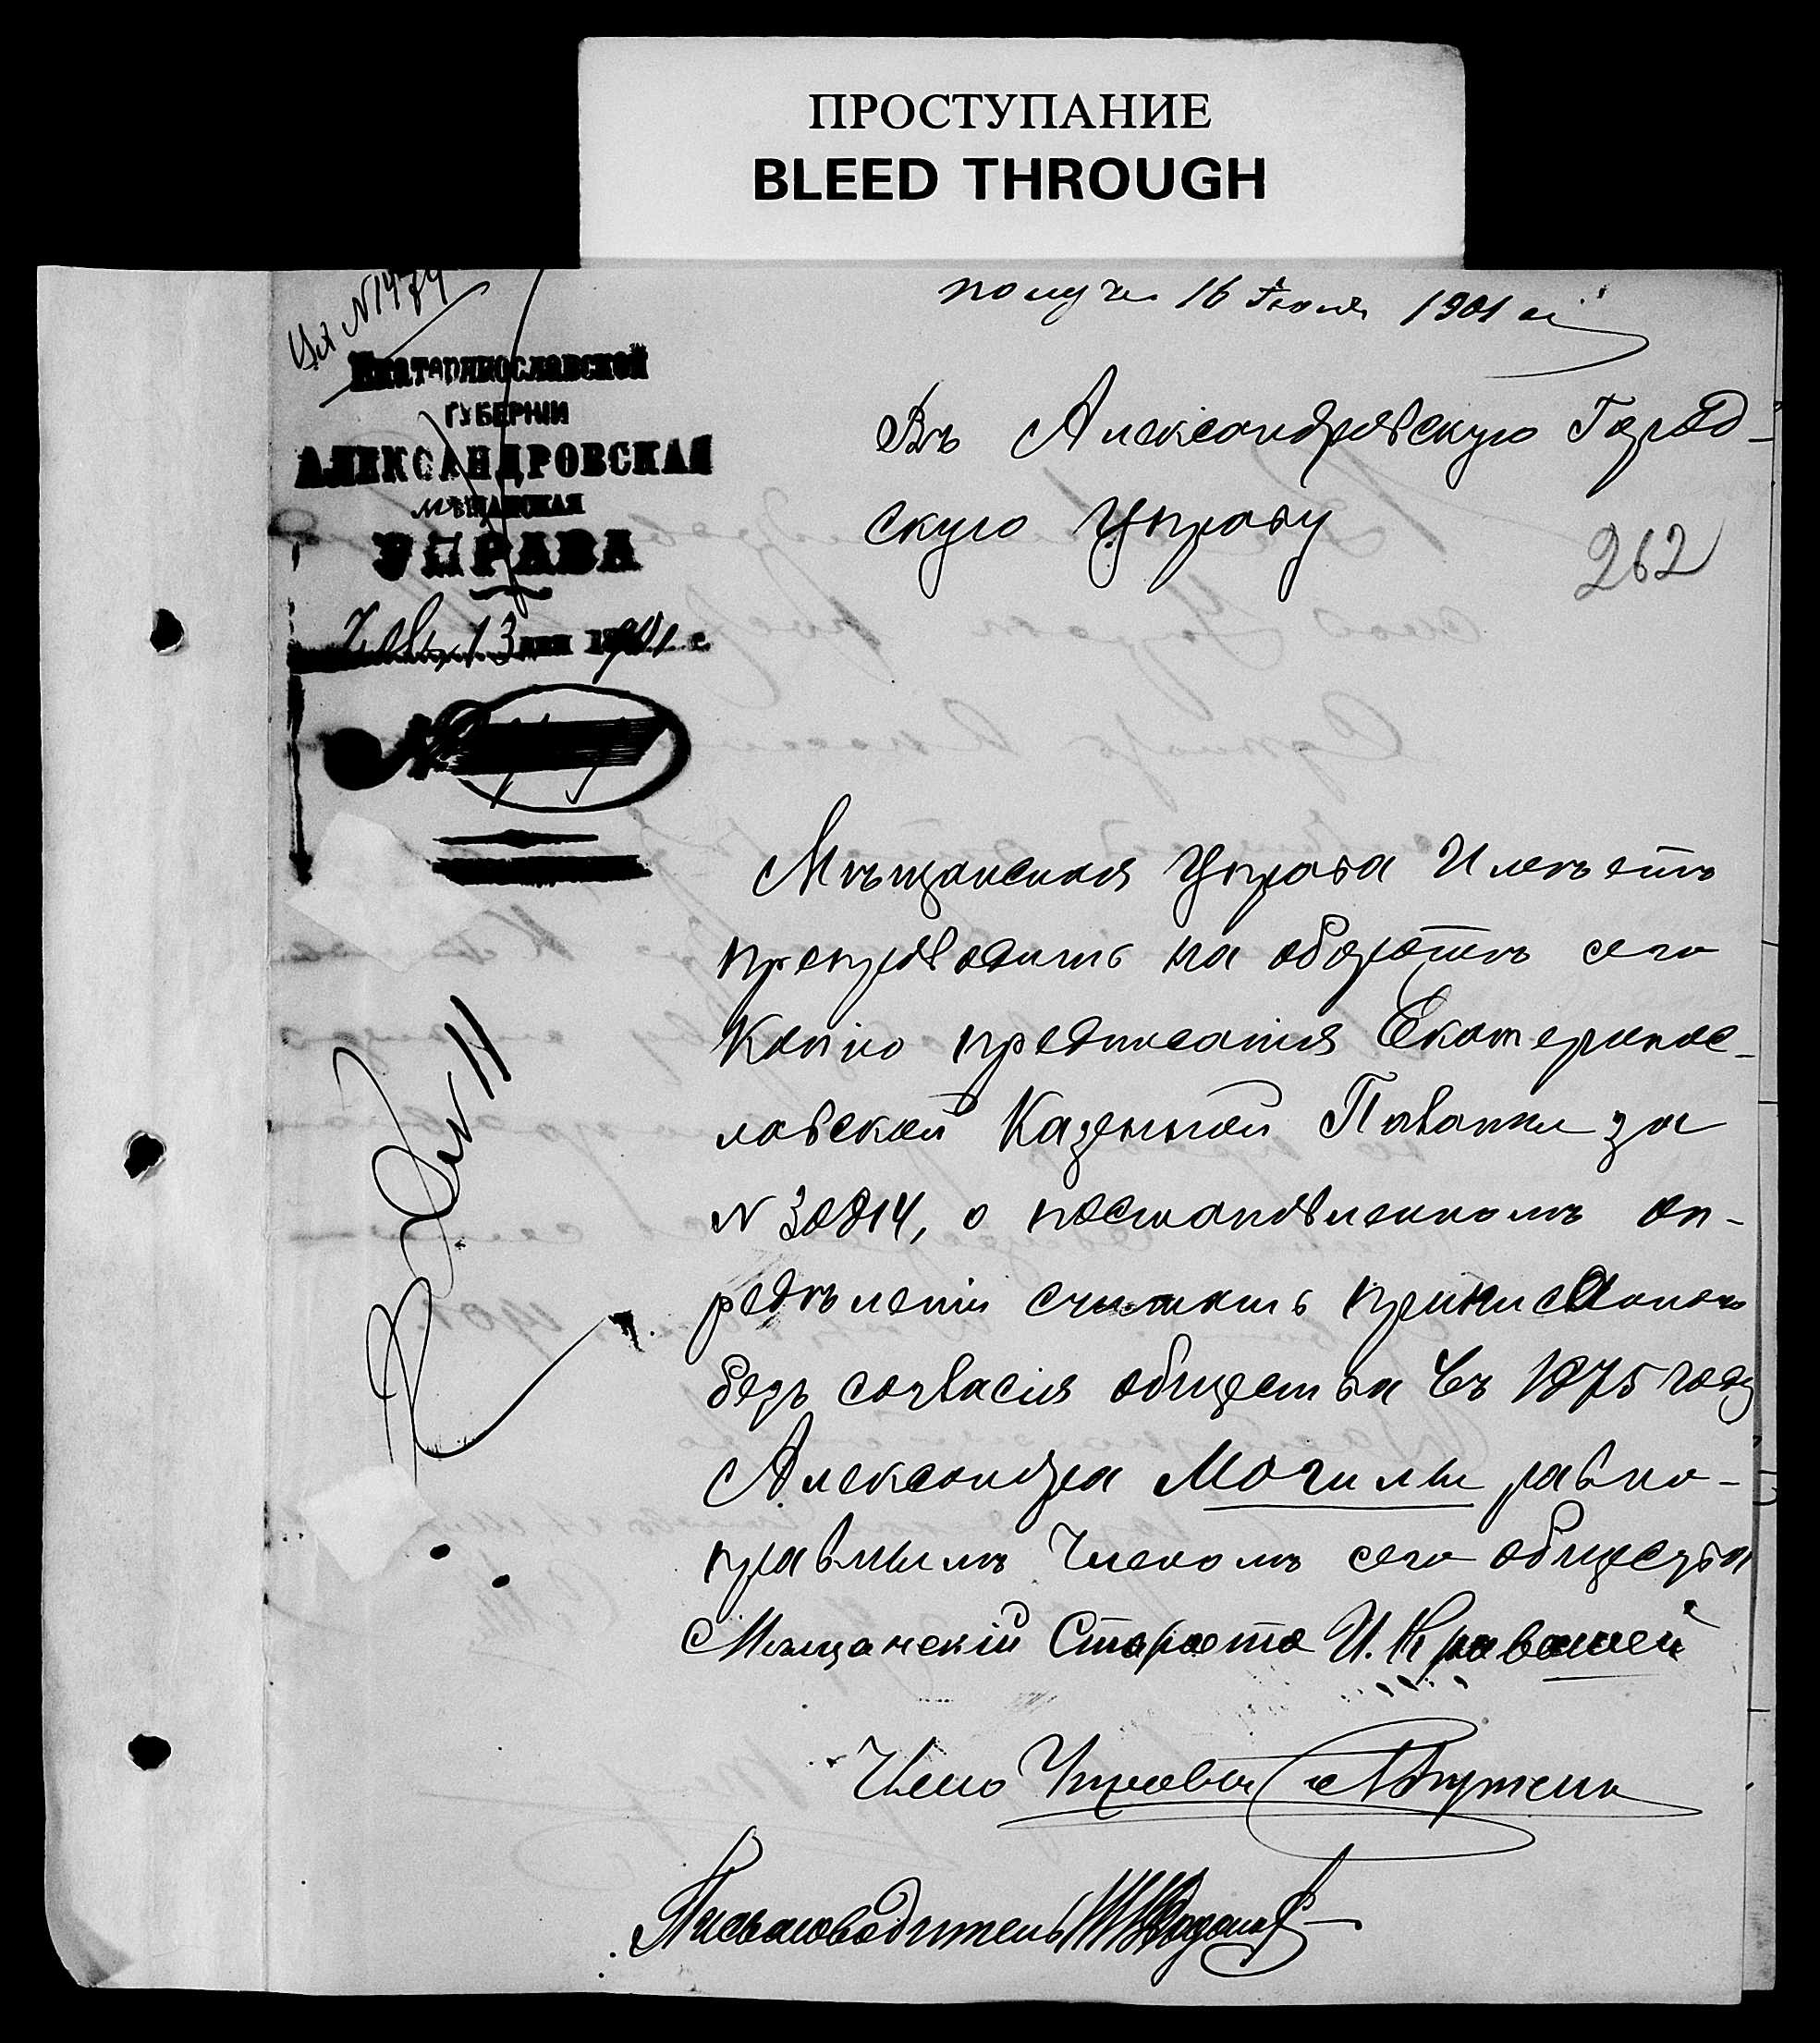 ПРОСТУПАНИЕ
BLEED THROUGH
получ 16 Іюля 1901
Екатеринославской
ГУБЕРНІИ
АЛЕКСАНДРОВСКАЯ
МѢЩАНСКАЯ
УПРАВА
13 дня 1901 г.
№
Въ Александровскую Город-
скую Управу
262
Мѣщанская Управа Имѣетъ
препроводить на оборотѣ сего
Копію предписанія Екатеринос-
лавской Казенной Палаты за
№ 30814, о постановленномъ оп-
редѣленіи считать приписаного
безъ согласія общества въ 1875 году
Александра Могилы равно-
правнымъ Членомъ сего общества
Мѣщанскій Староста И.
Члено Управы
Письмоводитель